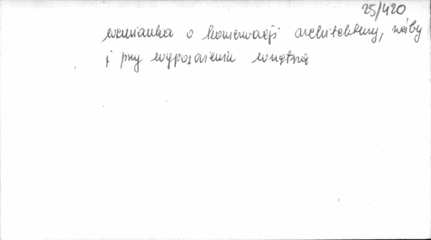 25/420
wzmianka o konserwacji architektury, rzeźby
i przy wyposażeniu wnętrza